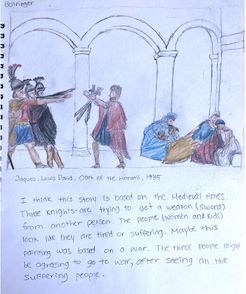 Behringer
Jaques-Louis David, Oath of the Horatii, 1785
I think this story is based on the Medieval times.
Three knights are trying to get a weapon (swords)
from another person. The people (women and kids)
look like they are tired or suffering. Maybe this
painting was based on a war. The three people might
be agreeing to go to war, after seeing all the
suffering people.